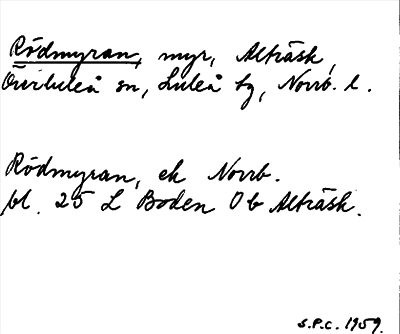 Rödmyran, myr, Alträsk,
Överluleå sn, Luleå tg, Norrb. l.
Rödmyran, ek Norrb.
bl. 25 L Boden Ob Alträsk.
S.P.C. 1959.